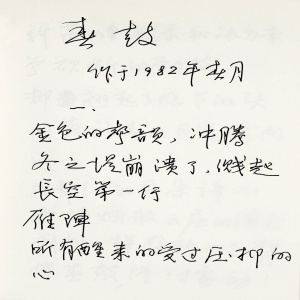 春鼓
作于1982年春月
一.
金色的声韻，冲腾
冬之堤崩溃了，溅起
长空第一行
雁陣
所有醒来的受过压抑的
心